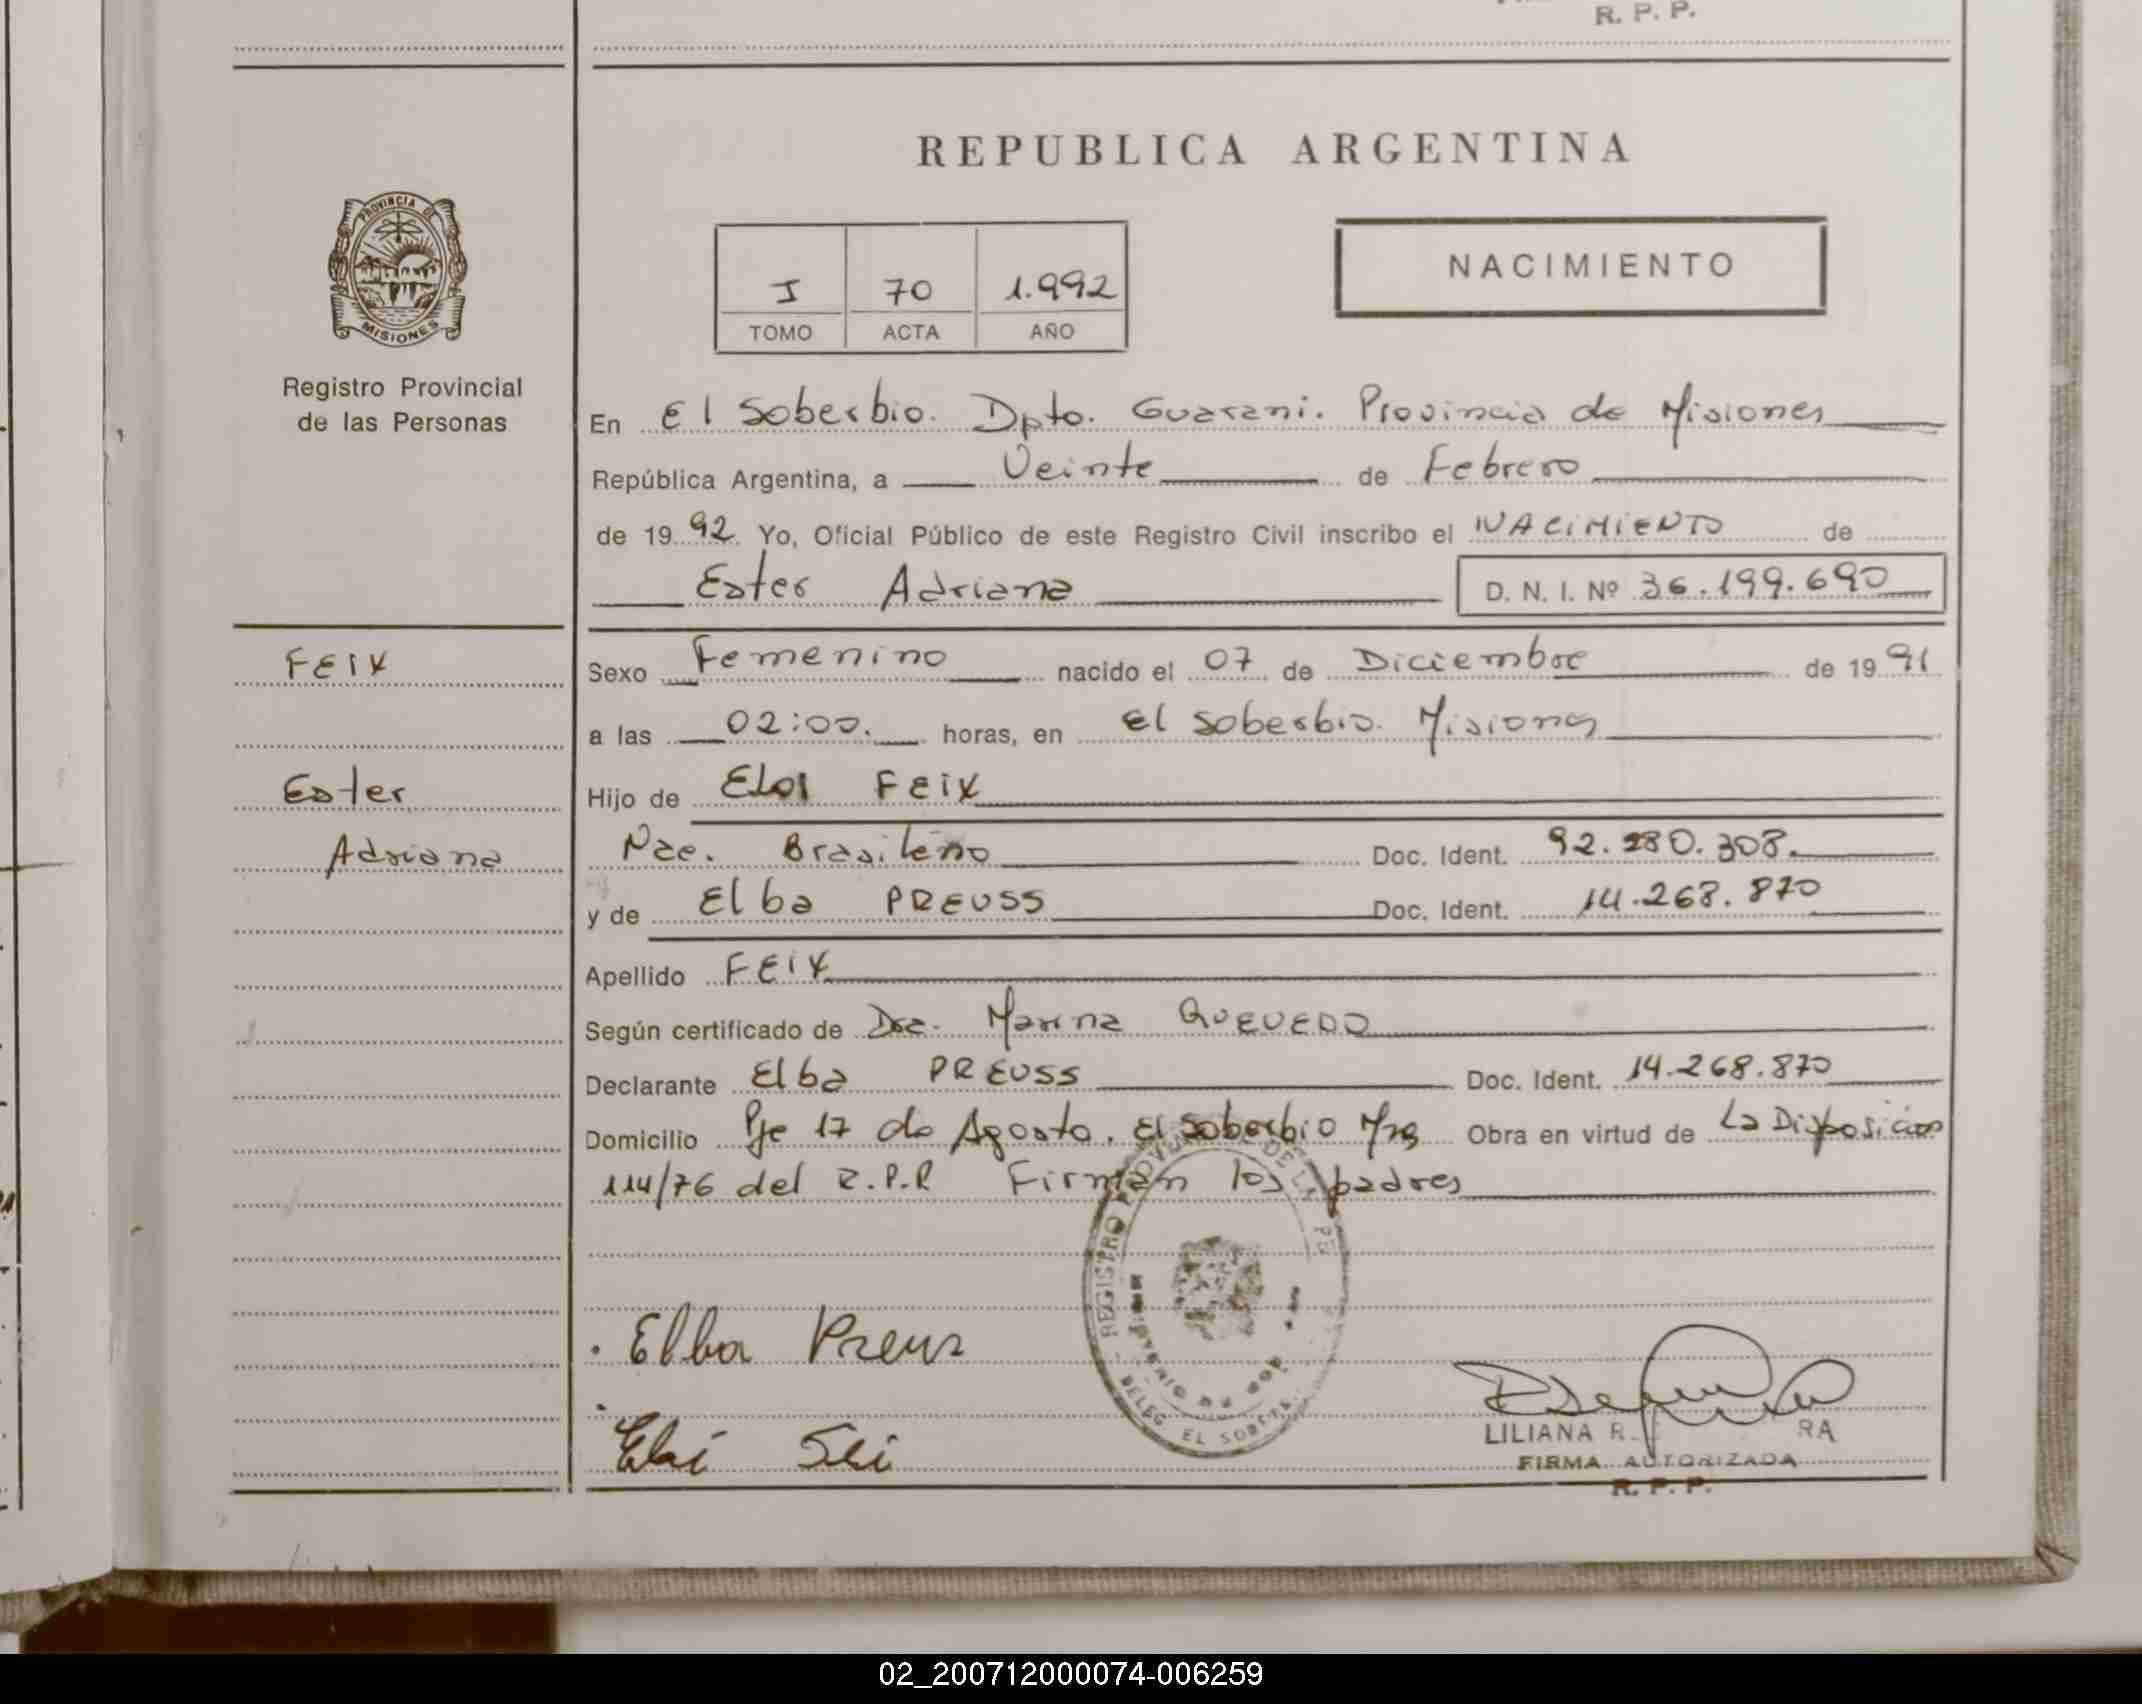 R. P. P.
REPUBLICA ARGENTINA
PROVINCIA DE
MISIONES
Registro Provincial
de las Personas
I 70 1.992
TOMO ACTA AÑO
NACIMIENTO
En El Soberbio. Dpto. Guarani. Provincia de Misiones
República Argentina, a Veinte de Febrero
de 19 92 Yo, Oficial Público de este Registro Civil inscribo el NACIMIENTO de
Ester Adriana D. N. I. Nº 36.199.690
FEIX
Ester
Adriana
Sexo Femenino nacido el 07 de Diciembre de 19 91
a las 02:00. horas, en El Soberbio. Misiones
Hijo de Eloi FEIX
Nac. Brasileño Doc. Ident. 92.280.308.
y de Elba PREUSS Doc. Ident. 14.268.870
Apellido FEIX
Según certificado de Dra. Marina QUEVEDO
Declarante Elba PREUSS Doc. Ident. 14.268.870
Domicilio Pje 17 de Agosto. El Soberbio Mnes Obra en virtud de La Disposicion
114/76 del R.P.P Firman los padres
REGISTRO PROV DE LA PE
MINISTERIO DE GOB
DELEG. EL SOBE
Elba Preus
LILIANA R. RA
FIRMA AUTORIZADA
R. P. P.
02_200712000074-006259